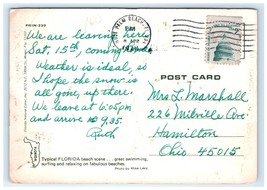 PALM BEACH
PM
APR
We are leaving here
Sat, 15th, coming
Weather is ideal, so
I hope the snow is
all gone, up there.
We leave at 6:05 pm
and arrive 9:35.
Ruth
POST CARD
Mrs. L. Marshall
226 Millville Ave
Hamilton
Ohio 45015
Typical FLORIDA beach scene . . . great swimming,
surfing and relaxing on fabulous beaches.